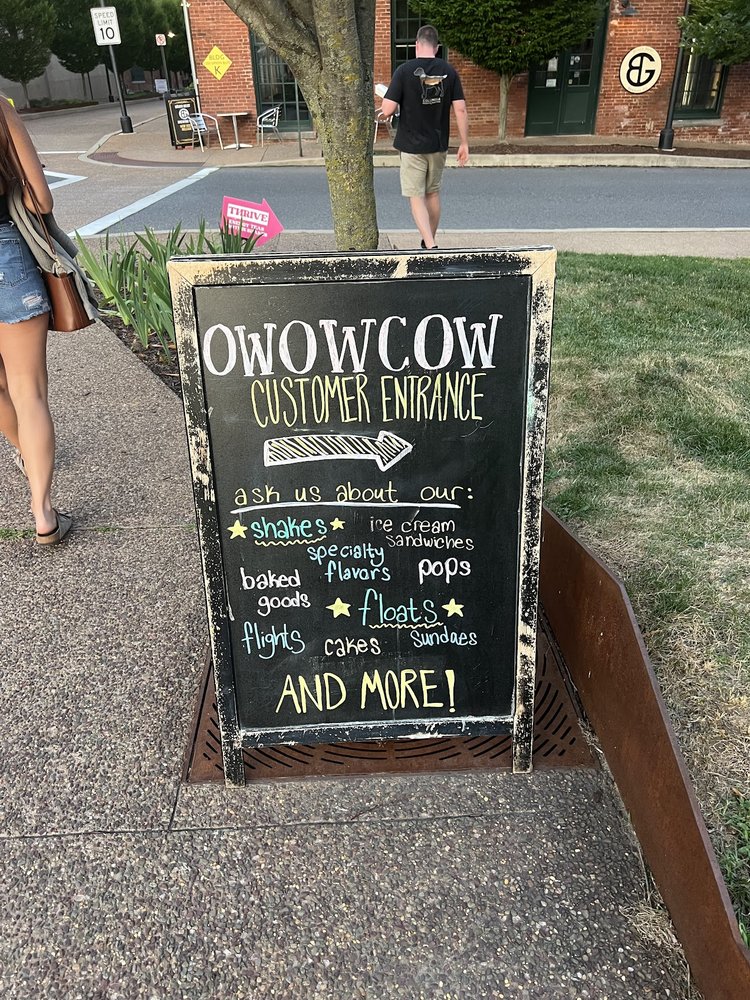 SPEED
LIMIT
10
BLDG
K
BG
THRIVE
OWOWCOW
CUSTOMER ENTRANCE
ask us about our:
shakes
ice cream
sandwiches
specialty
flavors
pops
baked
goods
floats
flights
cakes
sundaes
AND MORE!